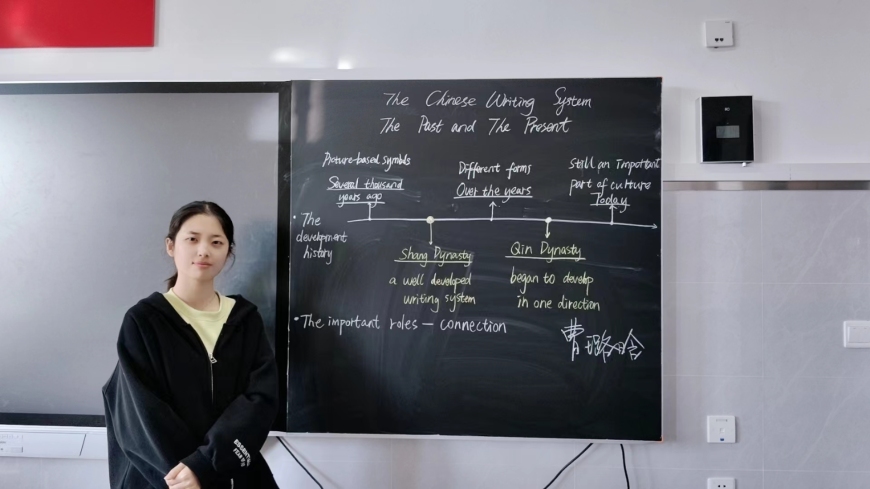 The Chinese Writing System
The Past and The Present
Picture-based symbols
Several thousand
years ago
Different forms
Over the years
Still an important
part of culture
Today
• The
development
history
Shang Dynasty
a well developed
writing system
Qin Dynasty
began to develop
in one direction
• The important roles — connection
曹